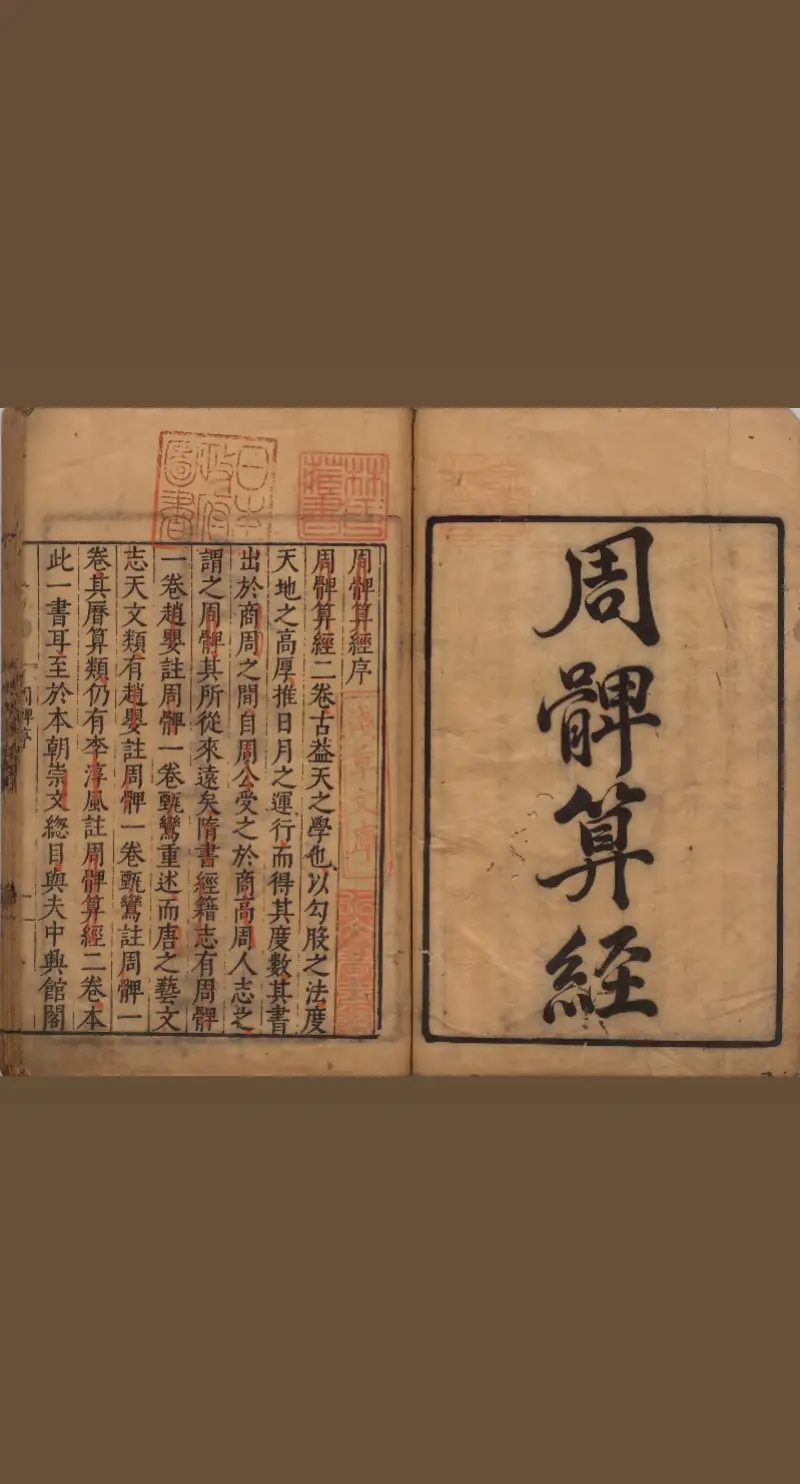 周髀算經
周髀算經序
周髀算經二卷古蓋天之學也以勾股之法度
天地之高厚推日月之運行而得其度數其書
出於商周之間自周公受之於商高周人志之
謂之周髀其所從來遠矣隋書經籍志有周髀
一卷趙嬰註周髀一卷甄鸞重述而唐之藝文
志天文類有趙嬰註周髀一卷甄鸞註周髀一
卷其曆算類仍有李淳風註周髀算經二卷本
此一書耳至於本朝崇文緫目與夫中興館閣
周髀序
日本
政府
圖書
淺草文庫